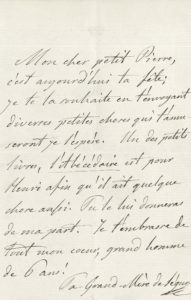 Mon cher petit Pierre,
c'est aujourd'hui ta fête;
je te la souhaite en t'envoyant
diverses petites choses qui t'amu
seront je l'espère. Un des petits
livres, l'Abécédaire est pour
Henri afin qu'il ait quelque
chose aussi. Tu le lui donneras
de ma part. Je t'embrasse de
tout mon cœur, grand homme
de 6 ans!
Ta Grand-Mère de Ségur